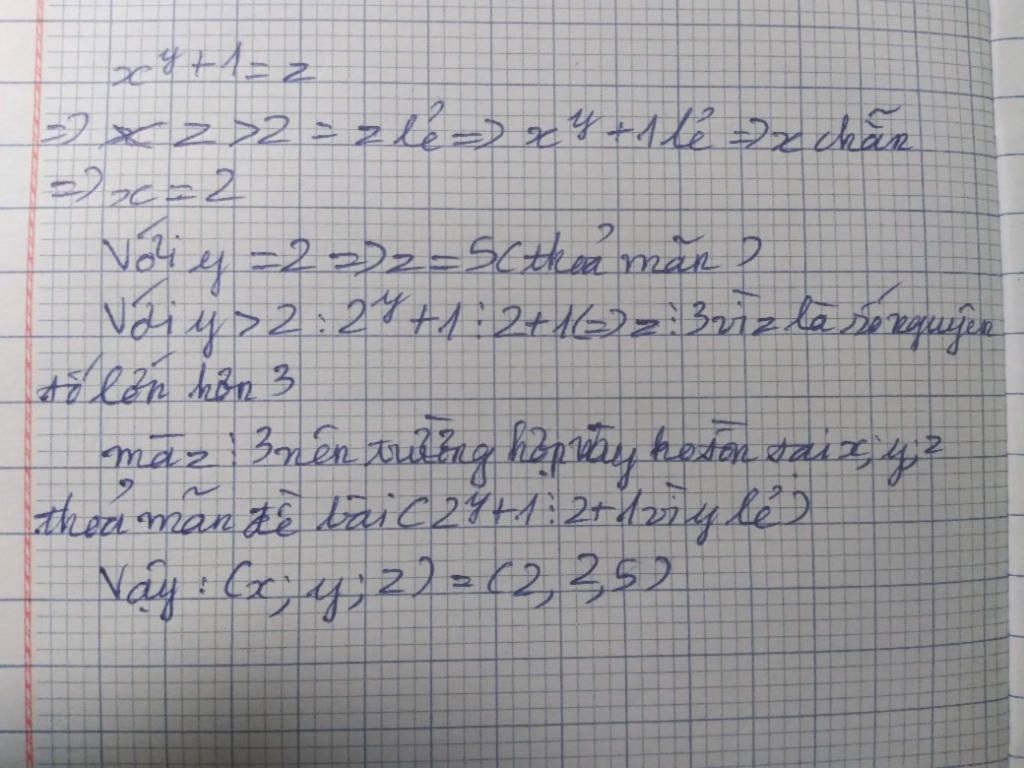 x^y + 1 = z
=> z > 2 = z lẻ => x^y + 1 lẻ => x chẵn
=> x = 2
Với y = 2 => z = 5 (thoả mãn)
Với y > 2 : 2^y + 1 ⋮ 2 + 1 (=) z ⋮ 3 vì z là số nguyên
tố lớn hơn 3
mà z ⋮ 3 nên trường hợp này ko tồn tại x; y; z
thoả mãn đề bài (2^y + 1 ⋮ 2 + 1 vì y lẻ)
Vậy : (x; y; z) = (2, 2, 5)